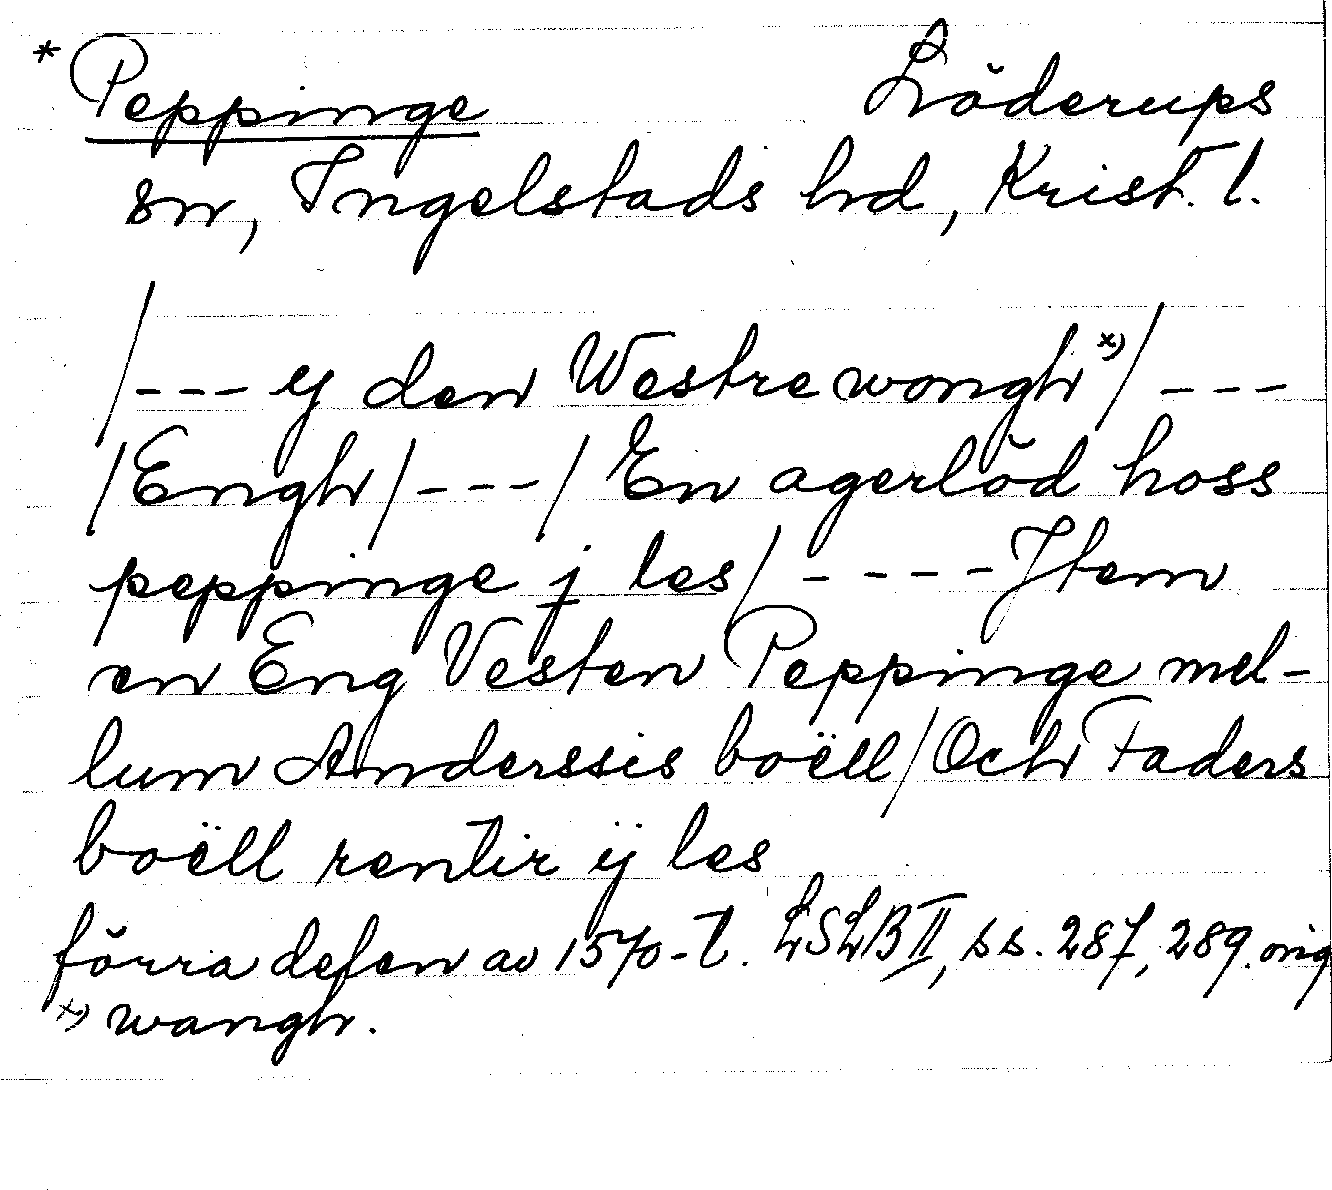 * Peppinge Löderups
sn, Ingelstads hd, Krist. l.
/--- y den Westre wongh x) / ---
/Engh/ --- / En agerlöd hoss
peppinge j les/ ---- Jtem
en Eng Vesten Peppinge mel-
lum Anderssis boëll / Och Faders
boëll rentir ij les
förra delen av 1570-t. LSLB II, ss. 287, 289. orig
x) wangh.